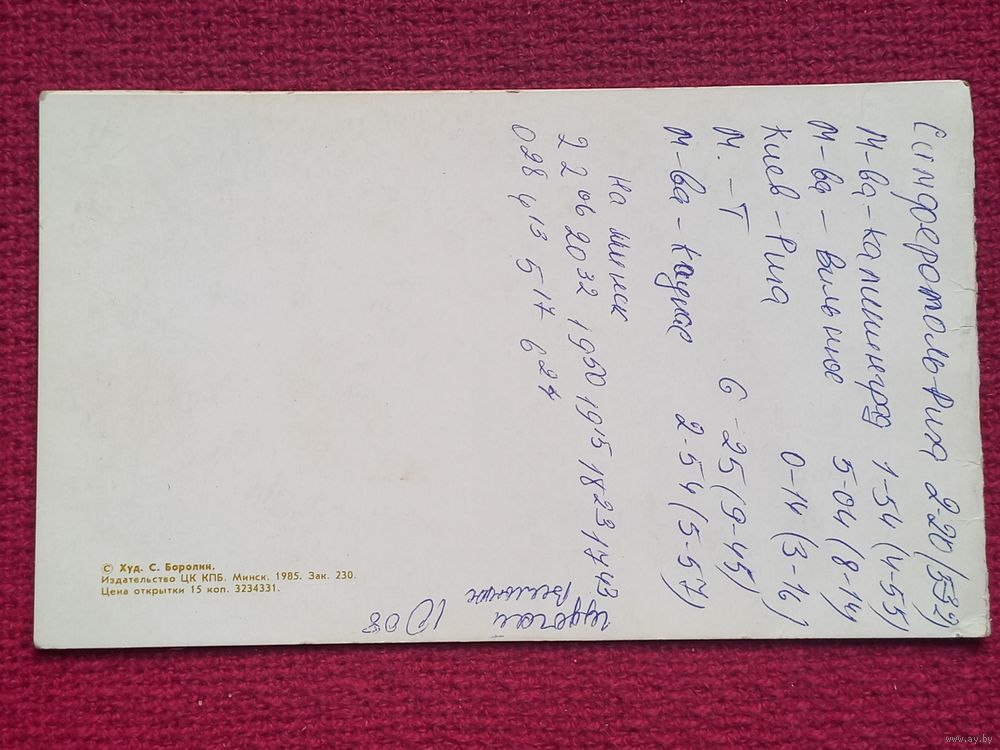 Симферополь-Рига 2-20 (5-32)
М-ва-Калининград 1-54 (4-55)
М-ва-Вильнюс 5-04 (8-14)
Киев-Рига 0-14 (3-16)
М.-Т 6-25 (9-45)
М-ва-Каунас 2-54 (5-57)
на минск
22 06 20 32 19 50 19 15 18 23 17 43
0 28 4 13 5 17 6 24
10 08
© Худ. С. Боролин.
Издательство ЦК КПБ. Минск. 1985. Зак. 230.
Цена открытки 15 коп. 3234331.
www.ay.by